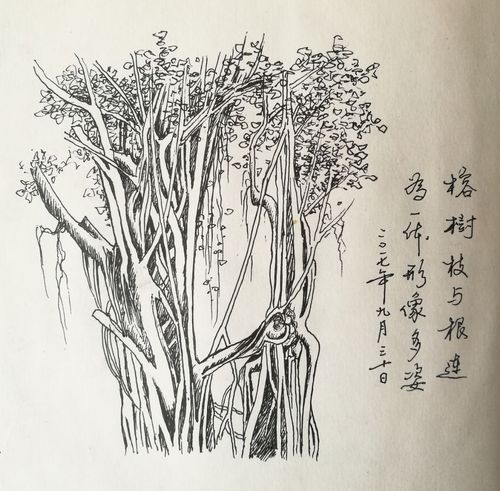 榕樹枝与根連
為一体形像多姿
二〇一七年九月三十日